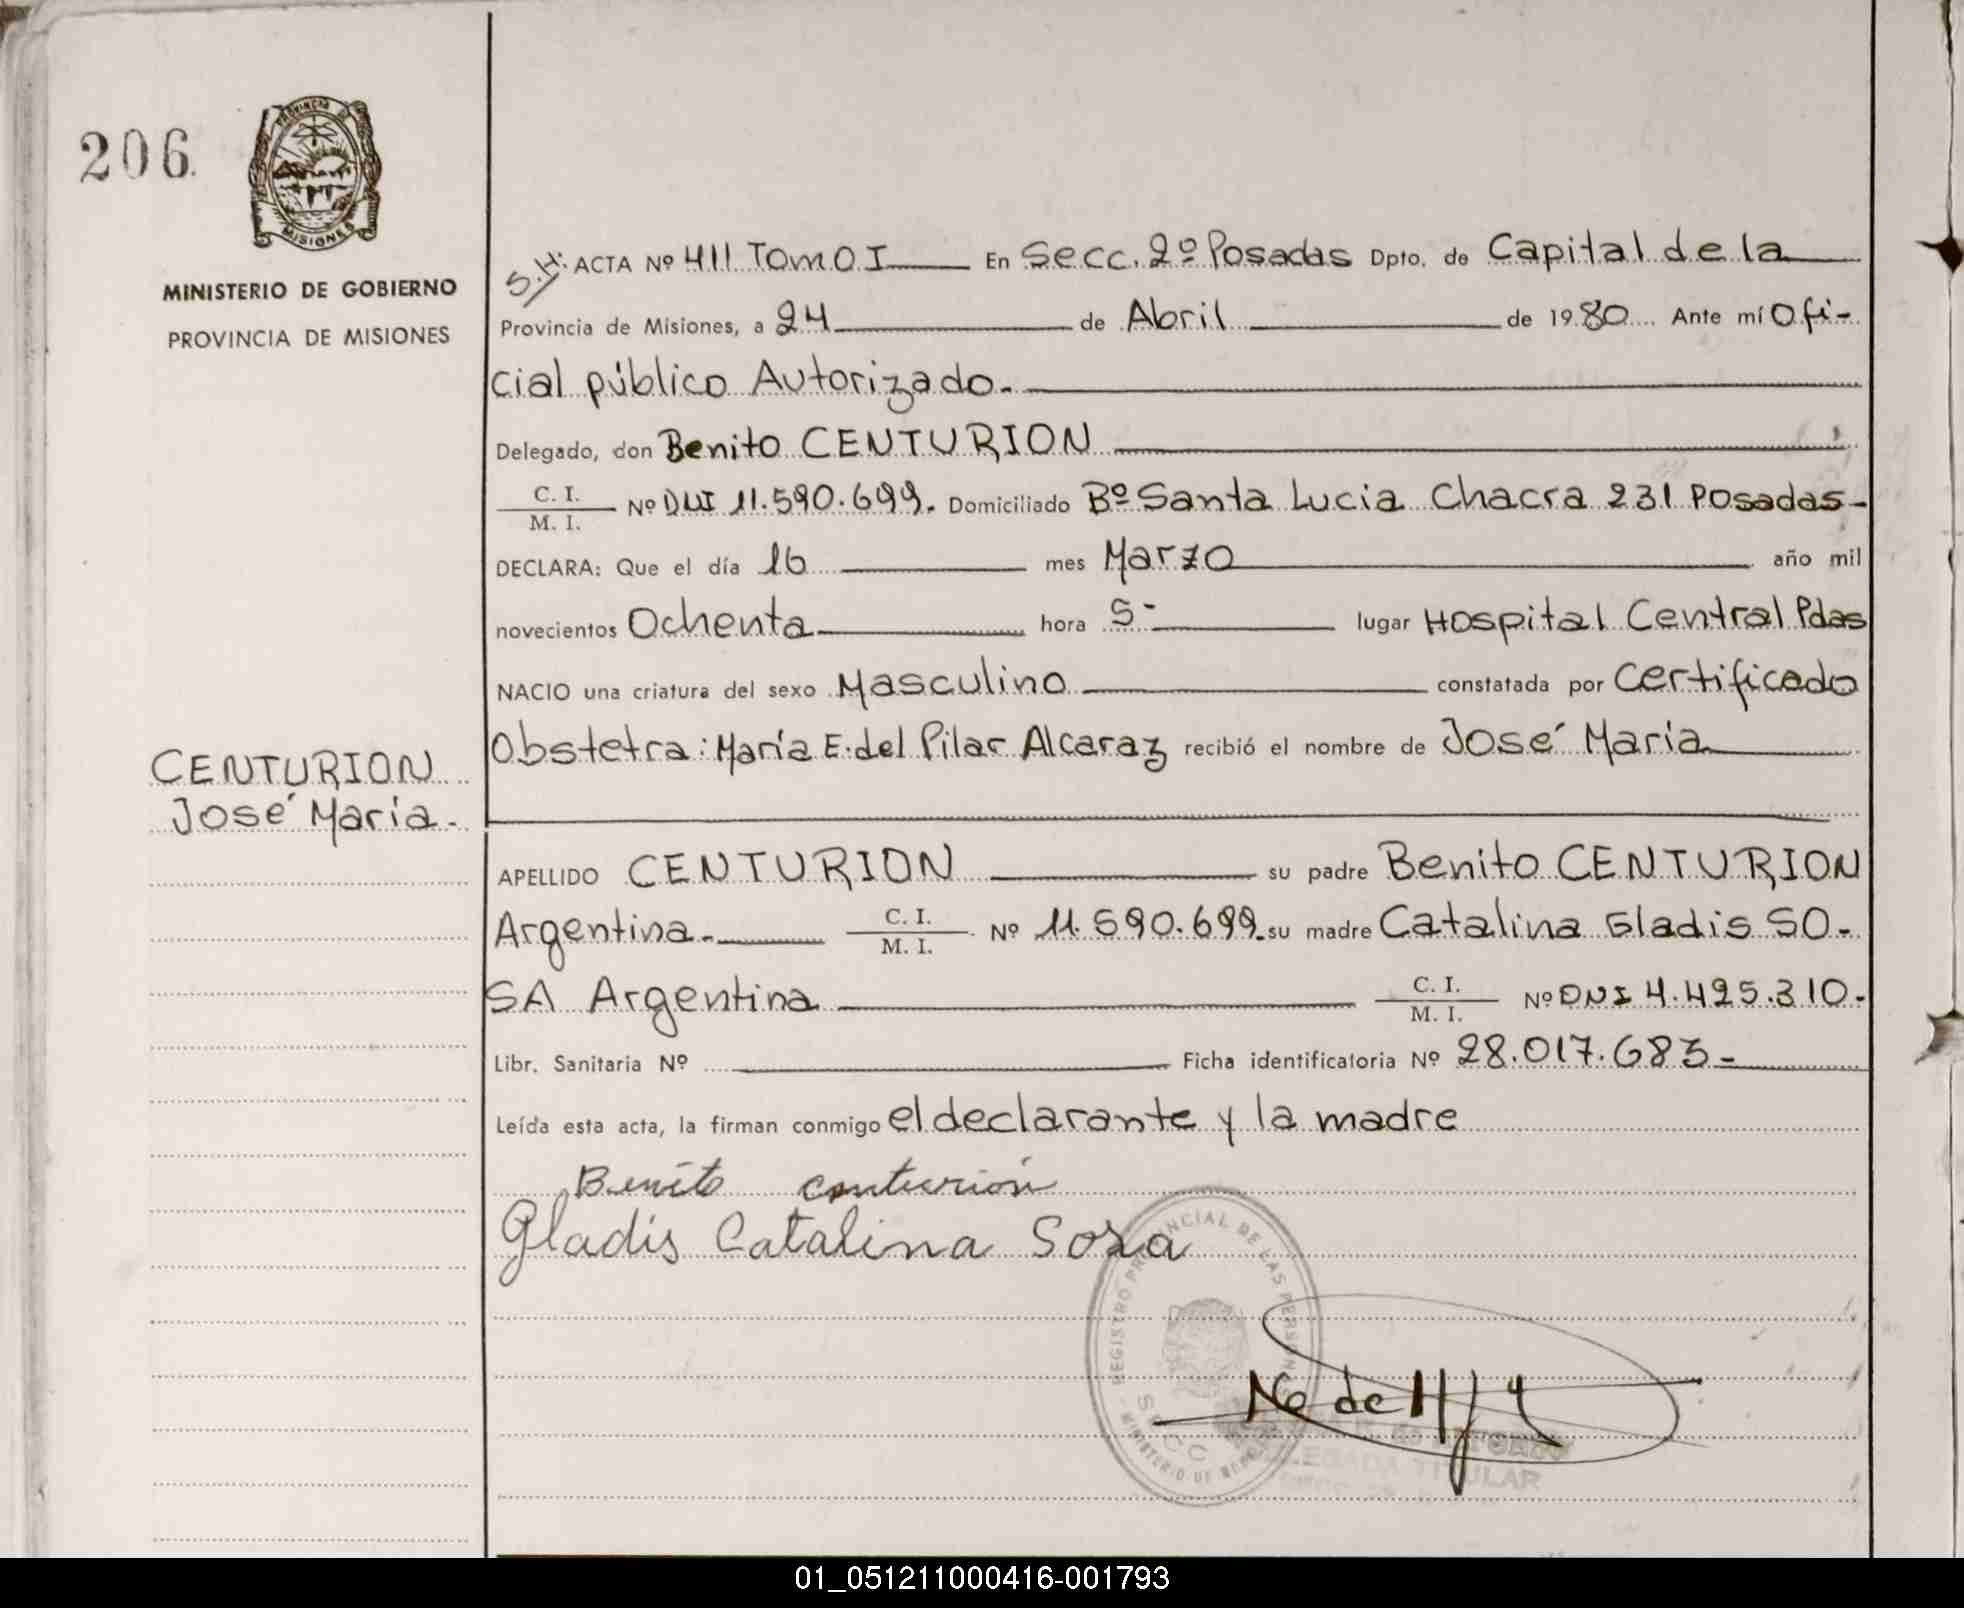 206.
PROVINCIA DE
MISIONES
MINISTERIO DE GOBIERNO
PROVINCIA DE MISIONES
CENTURION
José María.
S.H. ACTA Nº 411 Tomo I En Secc. 2º Posadas Dpto. de Capital de la
Provincia de Misiones, a 24 de Abril de 1980 Ante mí Ofi-
cial público Autorizado.-
Delegado, don Benito CENTURION
C. I.
M. I. Nº DNI 11.590.699. Domiciliado Bº Santa Lucia Chacra 231 Posadas-
DECLARA: Que el día 16 mes Marzo año mil
novecientos Ochenta hora 5- lugar Hospital Central Pdas
NACIO una criatura del sexo Masculino constatada por Certificado
Obstetra: María E. del Pilar Alcaraz recibió el nombre de José María
APELLIDO CENTURION su padre Benito CENTURION
Argentina.- C. I.
M. I. Nº 11.590.699. su madre Catalina Gladis SO-
SA Argentina C. I.
M. I. Nº DNI 4.425.310.-
Libr. Sanitaria Nº Ficha identificatoria Nº 28.017.683-
Leída esta acta, la firman conmigo el declarante y la madre
Benito centurión
Gladis Catalina Sosa
REGISTRO PROVINCIAL DE LAS PERSONAS
MINISTERIO DE
SECC
DELEGADA TITULAR
01_051211000416-001793